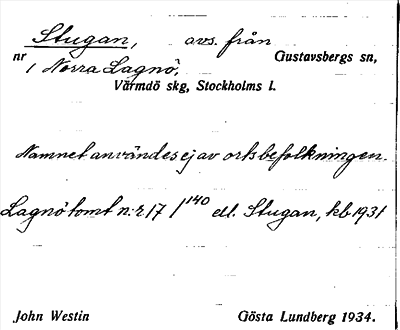 Stugan, avs. från
nr 1 Norra Lagnö. Gustavsbergs sn,
Värmdö skg, Stockholms l.
Namnet användes ej av ortsbefolkningen.
Lagnö tomt n:r 17 / 140 ell. Stugan, kb 1931
John Westin Gösta Lundberg 1934.